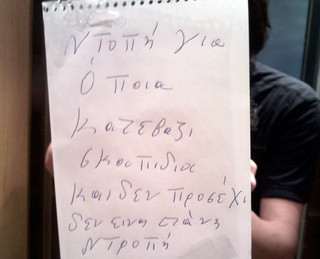 ντοπή για
Ό ποια
κατεβαζι
σκαπιδια
και δεν προσέχι
δεν εινη
ντροπή